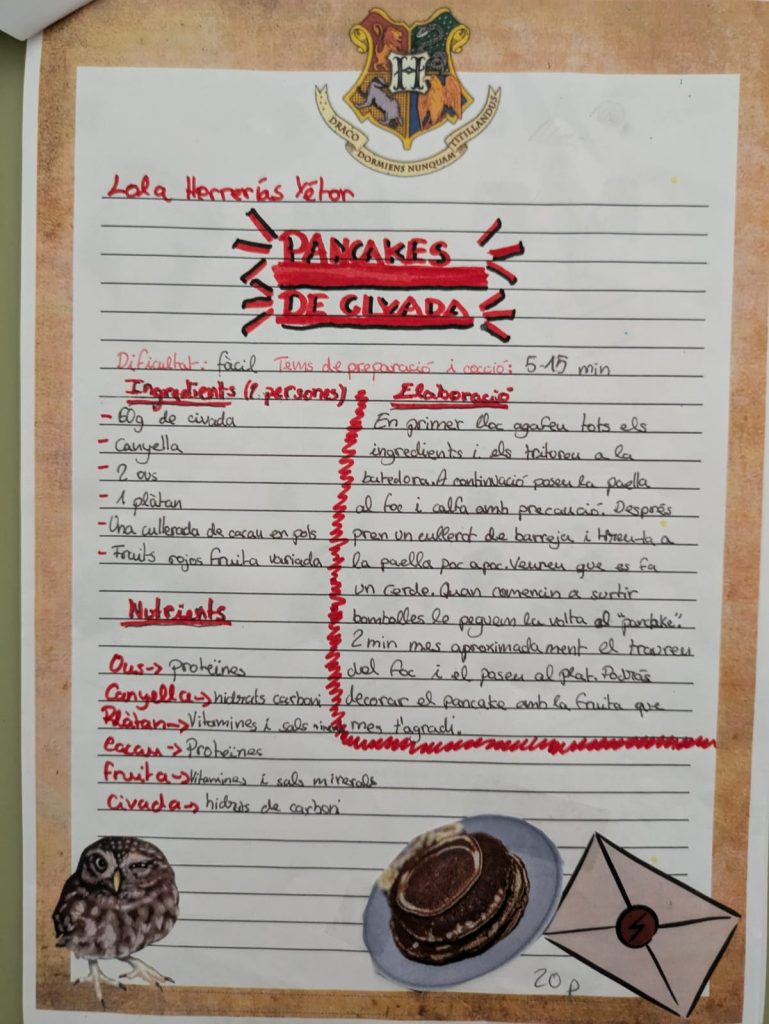 H
DRACO DORMIENS NUNQUAM TITILLANDUS
Lola Herrerías
PANCAKES
DE CIVADA
Dificultat: fàcil Tems de preparació i cocció: 5-15 min
Ingredients (1 persones)
- 60g de civada
- Canyella
- 2 ous
- 1 plàtan
- Una cullerada de cacau en pols
- Fruits rojos fruita variada
Nutrients
Ous → proteïnes
Canyella → hidrats carboni
Plàtan → Vitamines i sals
Cacau → Proteïnes
Fruita → Vitamines i sals minerals
Civada → hidrats de carboni
Elaboració
En primer lloc agafeu tots els
ingredients i els tritureu a la
batedora. A continuació poseu la paella
al foc i calfa amb precaució. Després
pren un cullerot de barreja i a
la paella poc a poc. Veureu que es fa
un cercle. Quan comencin a surtir
bombolles le peguem la volta al "pancake".
2 min mes aproximadament el traureu
del foc i el poseu al plat. Podràs
decorar el pancake amb la fruita que
mes t'agradi.
20 p